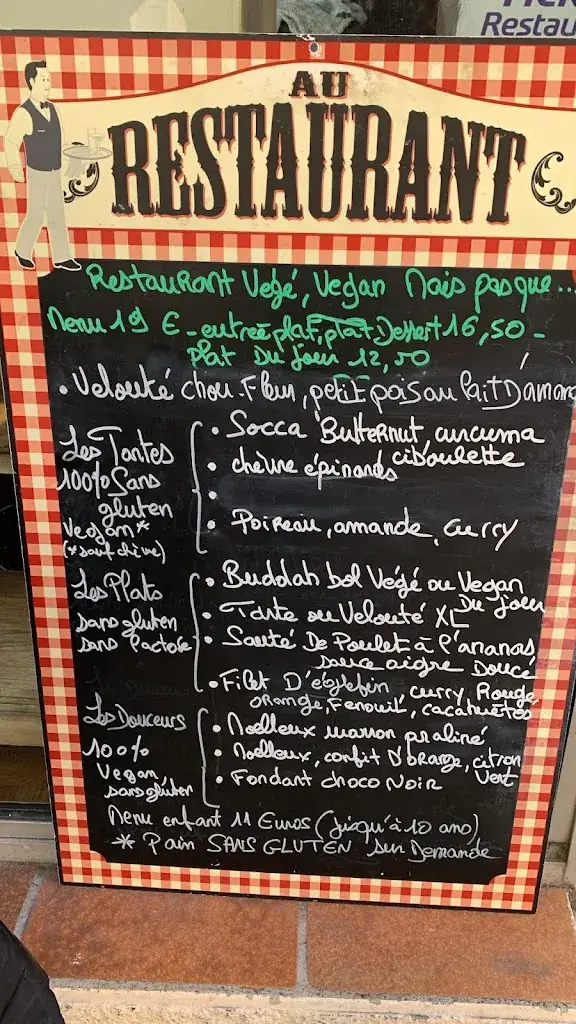 Restau
AU
RESTAURANT
Restaurant Végé, Vegan Mais pas que...
Menu 19 €-entrée plat, plat Dessert 16,50-
Plat Du jour 12,50
• Velouté chou-Fleur, petit pois au lait D'aman
Les Tartes
100% Sans
gluten
Vegan*
(*sauf chèvre)
• Socca Butternut, curcuma
ciboulette
• chèvre épinards
•
• Poireau, amande, curry
Les Plats
sans gluten
sans lactose
• Buddah bol Végé ou Vegan
Du jour
• Tarte ou Velouté XL
• Sauté De Poulet à l'ananas
sauce aigre Douce
• Filet D'églefin, curry Rouge,
orange, Fenouil, cacahuètes
Les Douceurs
100%
Vegan,
sans gluten
• Moelleux marron praliné
• Moelleux, confit D'orange, citron
Vert
• Fondant choco Noir
Menu enfant 11 Euros (jusqu'à 10 ano)
* Pain SANS GLUTEN sur Demande